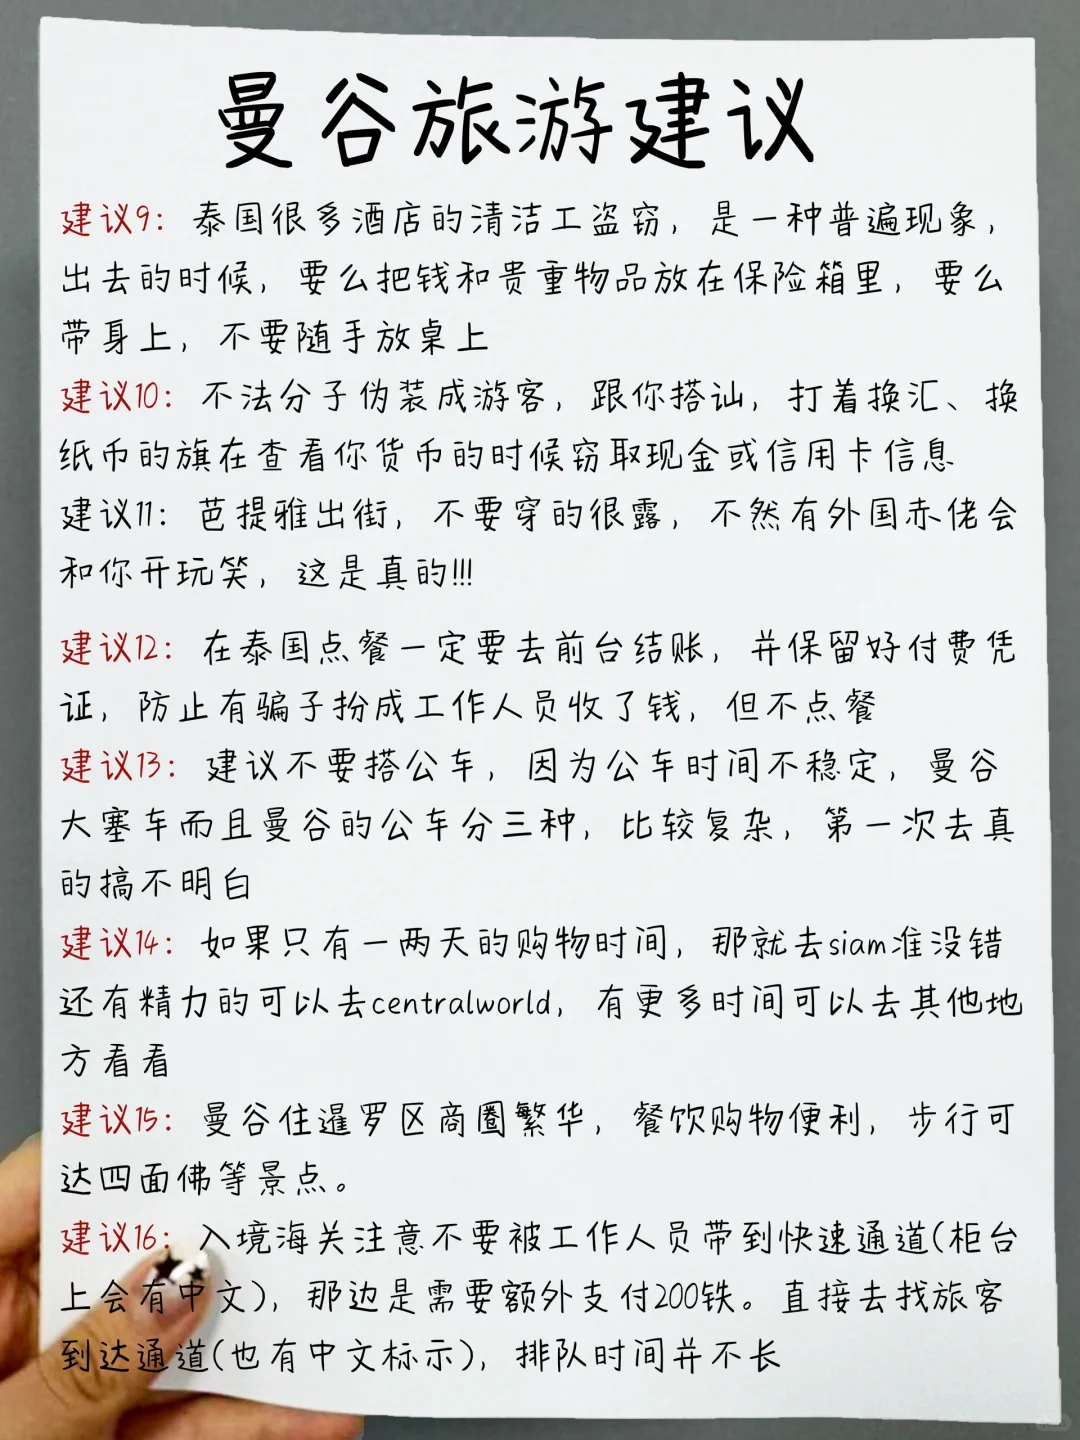 曼谷旅游建议
建议9：泰国很多酒店的清洁工盗窃，是一种普遍现象，
出去的时候，要么把钱和贵重物品放在保险箱里，要么
带身上，不要随手放桌上
建议10：不法分子伪装成游客，跟你搭讪，打着换汇、换
纸币的旗在查看你货币的时候窃取现金或信用卡信息
建议11：芭提雅出街，不要穿的很露，不然有外国赤佬会
和你开玩笑，这是真的!!!
建议12：在泰国点餐一定要去前台结账，并保留好付费凭
证，防止有骗子扮成工作人员收了钱，但不点餐
建议13：建议不要搭公车，因为公车时间不稳定，曼谷
大塞车而且曼谷的公车分三种，比较复杂，第一次去真
的搞不明白
建议14：如果只有一两天的购物时间，那就去siam准没错
还有精力的可以去centralworld，有更多时间可以去其他地
方看看
建议15：曼谷住暹罗区商圈繁华，餐饮购物便利，步行可
达四面佛等景点。
建议16：入境海关注意不要被工作人员带到快速通道(柜台
上会有中文)，那边是需要额外支付200铢。直接去找旅客
到达通道(也有中文标示)，排队时间并不长